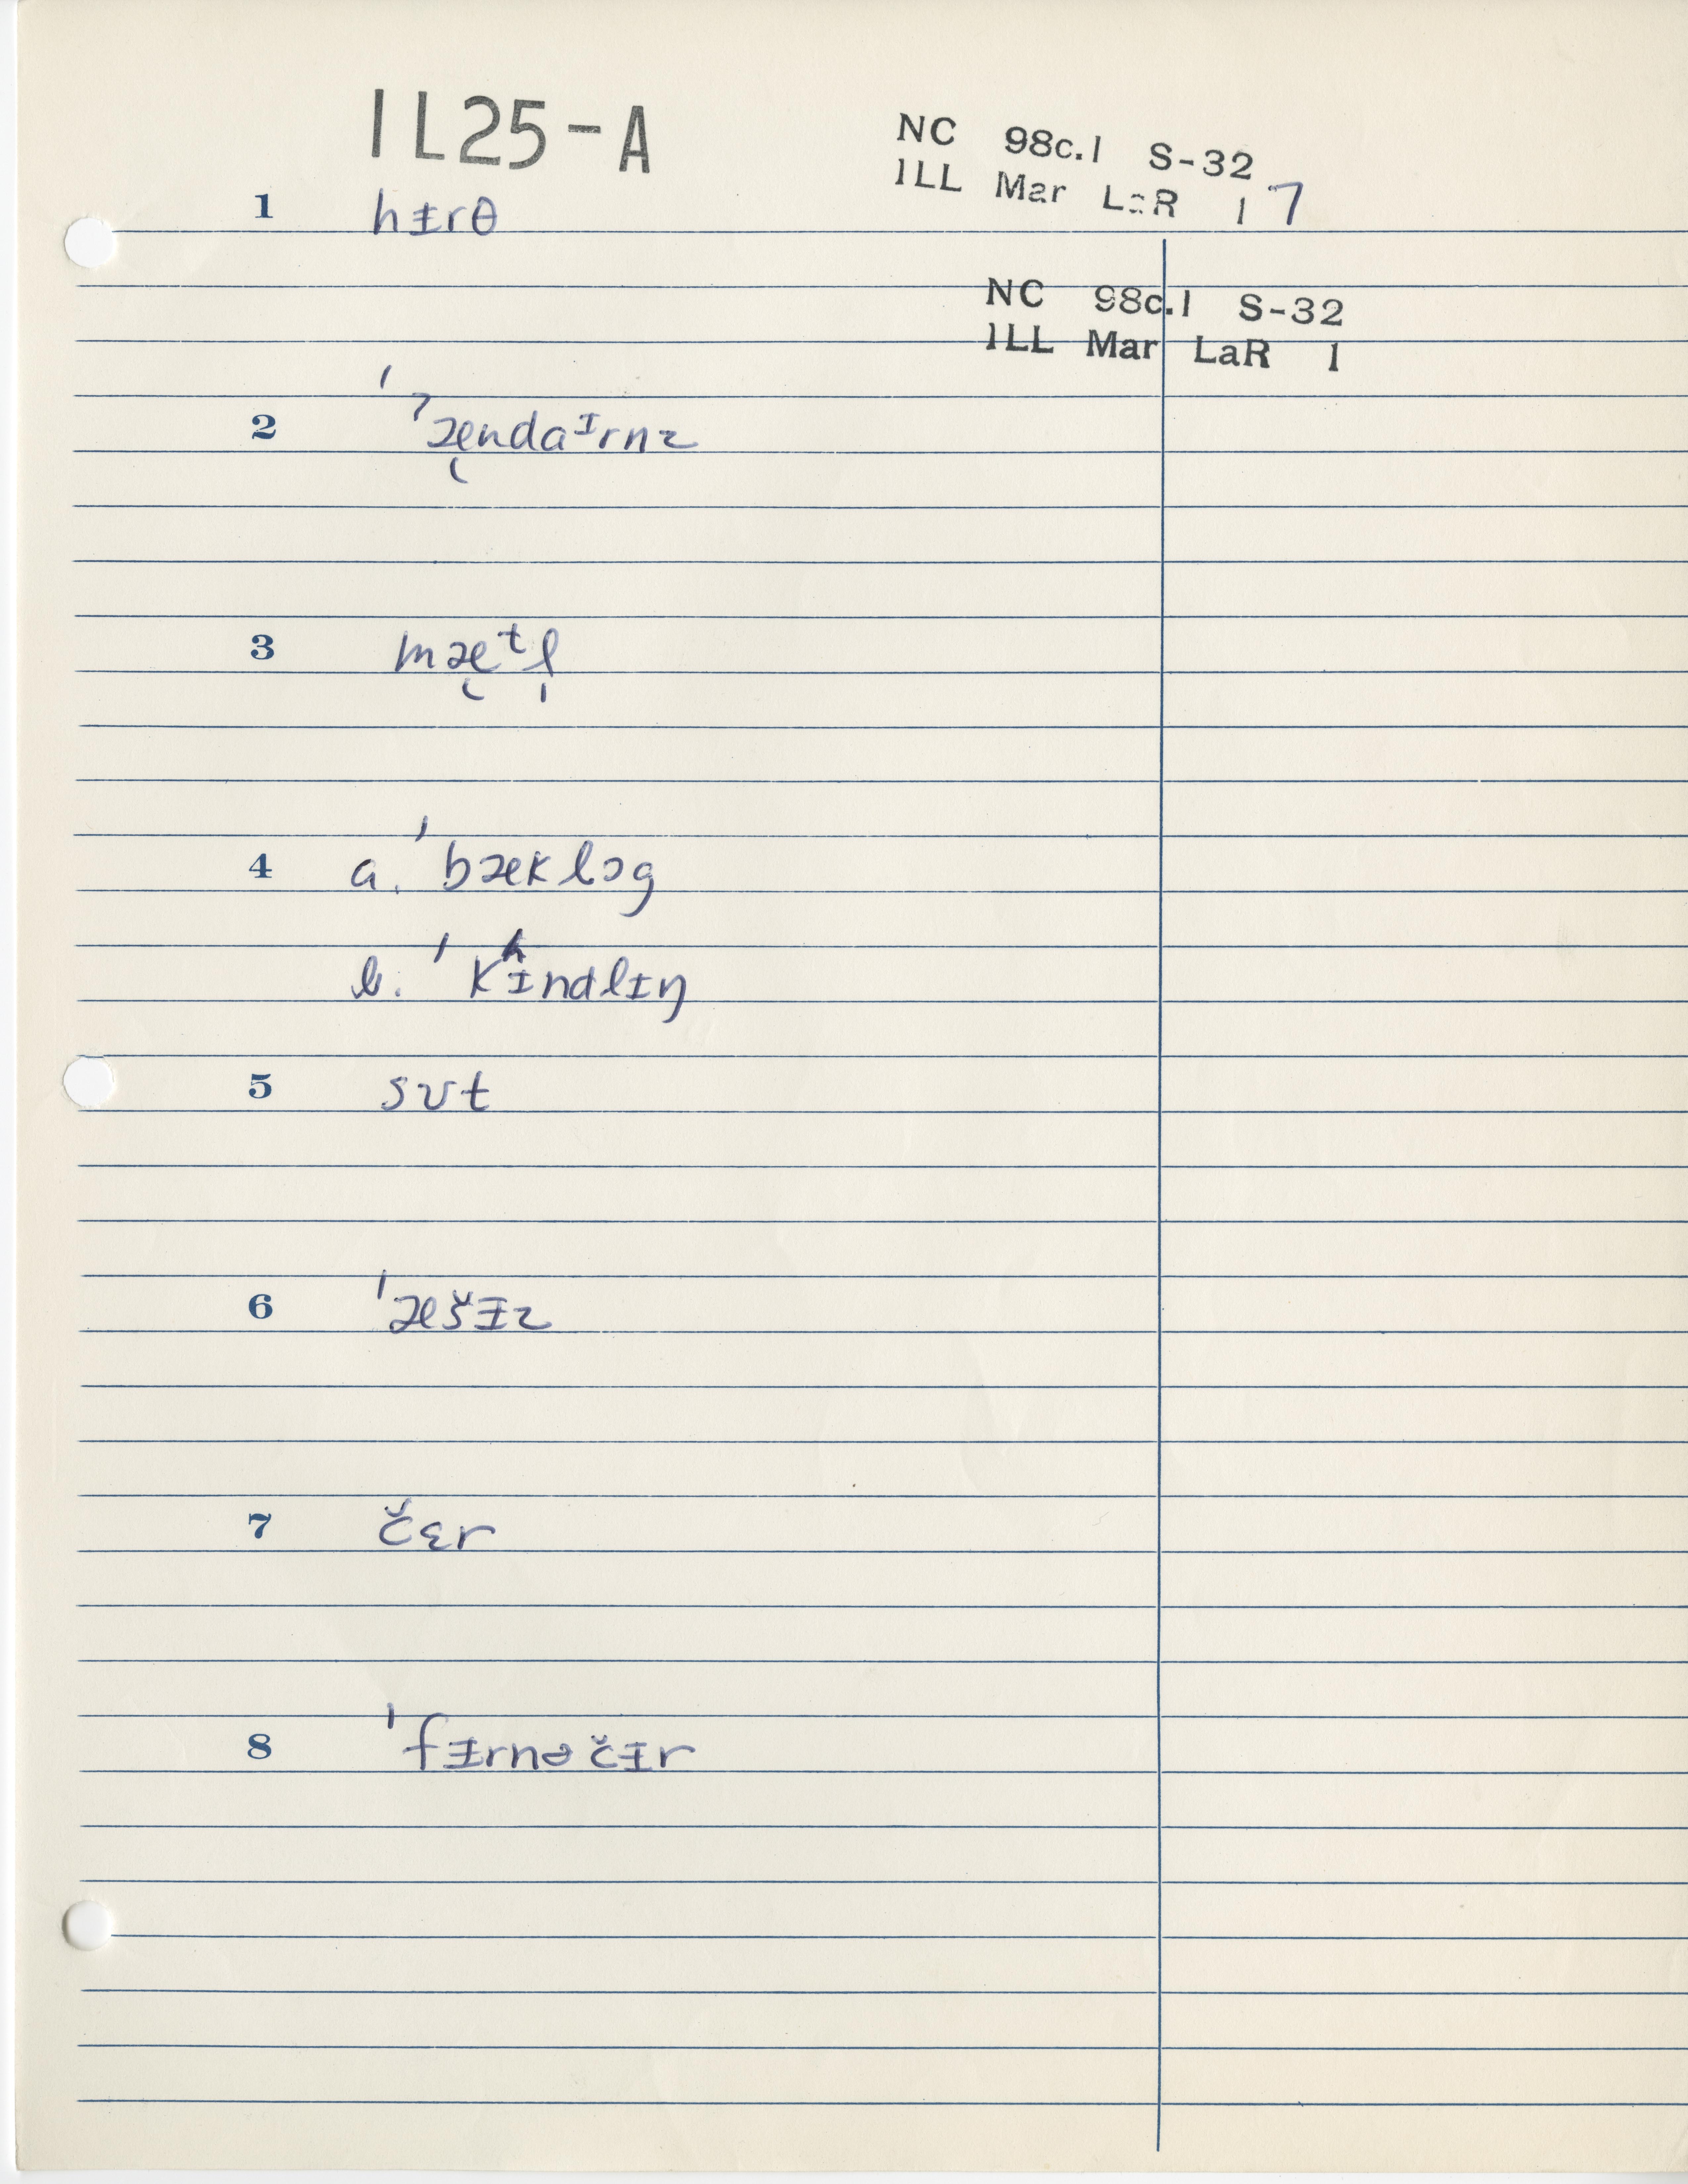 IL25-A
NC 98c.1 S-32
ILL Mar LaR 1 7
1 hɪ̵rθ
NC 98c.1 S-32
ILL Mar LaR 1
2 ˈˀæ̜ndaᶦrnz
3 mæ̜ᵗl̩
4 a. ˈbæklɔg
b. ˈkʰɪndlɪŋ
5 sʊt
6 ˈæšɪ̵z
7 čɛr
8 ˈfɪ̵rnəčɪ̵r